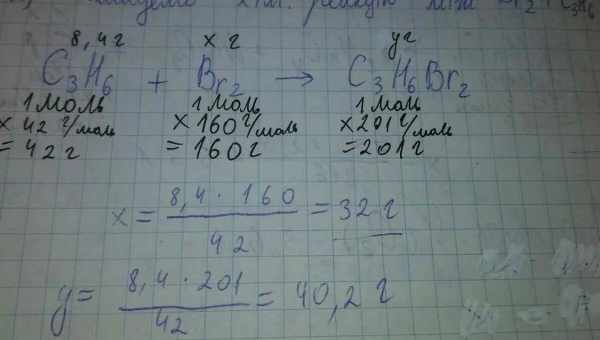 хім. між C₃H₆
8,4 г x г y г
C₃H₆ + Br₂ → C₃H₆Br₂
1 моль 1 моль 1 моль
× 42 г/моль × 160 г/моль × 201 г/моль
= 42 г = 160 г = 201 г
x = 8,4 · 160 / 42 = 32 г
y = 8,4 · 201 / 42 = 40,2 г